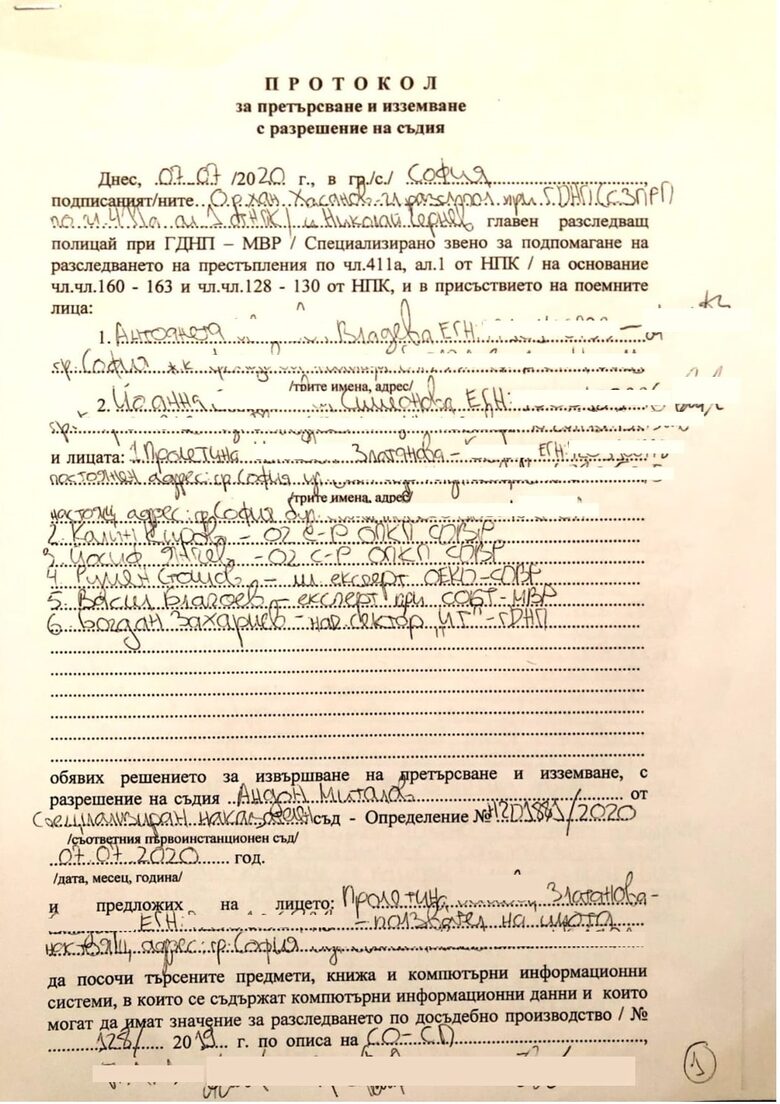 П Р О Т О К О Л
за претърсване и изземване
с разрешение на съдия
Днес, 07.07 /2020 г., в гр./с./ София
подписаният/ните Орхан Хасанов при ГДНП (СЗПРП
и Николай главен разследващ
полицай при ГДНП – МВР / Специализирано звено за подпомагане на
разследването на престъпления по чл.411а, ал.1 от НПК / на основание
чл.чл.160 - 163 и чл.чл.128 - 130 от НПК, и в присъствието на поемните
лица:
1. Антоанета Владева ЕГН:
гр. София ж.к.
/трите имена, адрес/
2. Йоанна Симонова ЕГН:
гр.
и лицата: 1. Пролетина Златанова - ЕГН:
постоянен адрес: гр. София
/трите имена, адрес/
настоящ адрес: гр. София бул.
2. Калин Киров - 02 с-р ОПКП СДВР
3. Йосиф Янчев - 02 с-р ОПКП СДВР
4. Румен Стоилов - експерт ОЕКД-СДВР
5. Васил Благоев - експерт при СОБТ-МВР
6. Богдан Захариев - нач. сектор "ИГ" - ГДНП
обявих решението за извършване на претърсване и изземване, с
разрешение на съдия Андон Миталов от
Специализиран наказателен съд - Определение № /2020
/съответния първоинстанционен съд/
07.07.2020 год.
/дата, месец, година/
и предложих на лицето: Пролетина Златанова -
ЕГН: - ползвател на имота
адрес: гр. София
да посочи търсените предмети, книжа и компютърни информационни
системи, в които се съдържат компютърни информационни данни и които
могат да имат значение за разследването по досъдебно производство / №
128/ 2019 г. по описа на СО-СП,
1